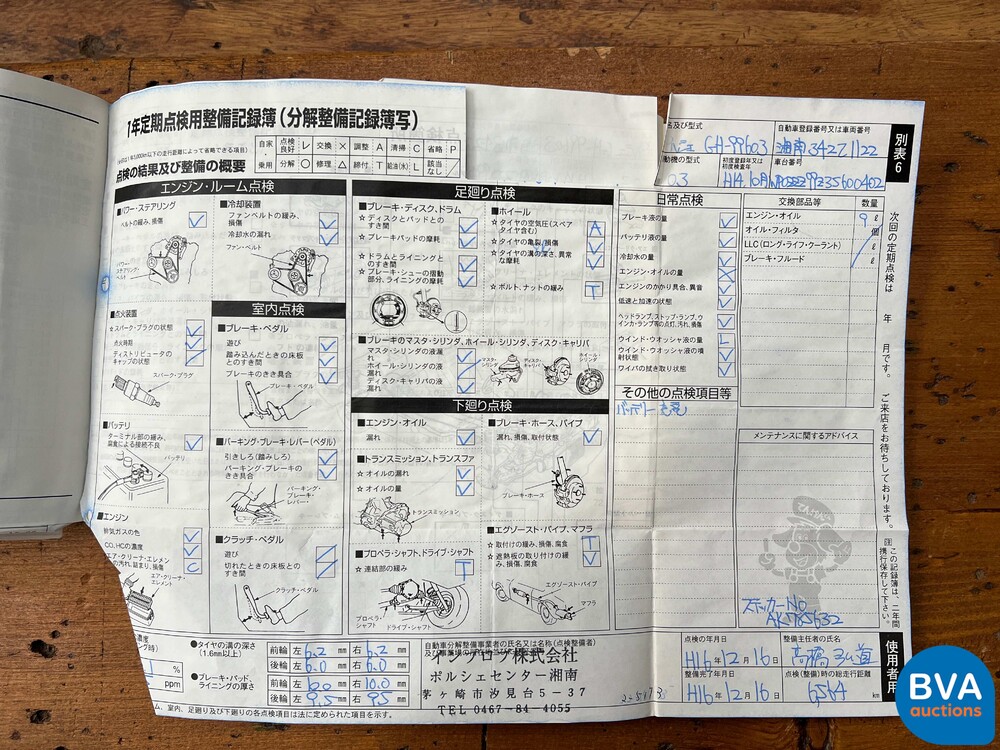 1年定期点検用整備記録簿(分解整備記録簿写)
点検の結果及び整備の概要
自家 点検良好 レ 交換 × 調整 A 清掃 C 省略 P
乗用 分解 ○ 修理 △ 締付 T 給油(水) L 該当なし
エンジン・ルーム点検
■パワー・ステアリング
ベルトの緩み、損傷
パワーステアリング・ベルト
■冷却装置
ファンベルトの緩み、損傷
冷却水の漏れ
ファン・ベルト
■点火装置
☆スパーク・プラグの状態
点火時期
ディストリビュータのキャップの状態
スパーク・プラグ
■バッテリ
ターミナル部の緩み、腐食による接続不良
バッテリ
■エンジン
排気ガスの色
CO、HCの濃度
エア・クリーナ・エレメントの汚れ、詰まり、損傷
エア・クリーナ・エレメント
室内点検
■ブレーキ・ペダル
遊び
踏み込んだときの床板とのすき間
ブレーキのきき具合
ブレーキ・ペダル
■パーキング・ブレーキ・レバー(ペダル)
引きしろ(踏みしろ)
パーキング・ブレーキのきき具合
パーキング・ブレーキ・レバー
■クラッチ・ペダル
遊び
切れたときの床板とのすき間
クラッチ・ペダル
足廻り点検
■ブレーキ・ディスク、ドラム
☆ディスクとパッドとのすき間
☆ブレーキパッドの摩耗
☆ドラムとライニングとのすき間
☆ブレーキ・シューの摺動部分、ライニングの摩耗
■ホイール
☆タイヤの空気圧(スペアタイヤ含む) A
☆タイヤの亀裂、損傷
☆タイヤの溝の深さ、異常な摩耗
☆ボルト、ナットの緩み T
■ブレーキのマスタ・シリンダ、ホイール・シリンダ、ディスク・キャリパ
マスタ・シリンダの液漏れ
ホイール・シリンダの液漏れ
ディスク・キャリパの液漏れ
マスタ・シリンダ
ディスク・キャリパ
ホイール・シリンダ
下廻り点検
■エンジン・オイル
漏れ
■ブレーキ・ホース、パイプ
漏れ、損傷、取付状態
ブレーキ・ホース
■トランスミッション、トランスファ
☆オイルの漏れ
☆オイルの量
トランスミッション
■エグゾースト・パイプ、マフラ
☆取付けの緩み、損傷、腐食 T
☆遮熱板の取り付けの緩み、損傷、腐食
エグゾースト・パイプ
マフラ
■プロペラ・シャフト、ドライブ・シャフト
☆連結部の緩み T
プロペラ・シャフト
ドライブ・シャフト
日常点検
ブレーキ液の量
バッテリ液の量
冷却水の量
エンジン・オイルの量
エンジンのかかり具合、異音
低速と加速の状態
ヘッドランプ、ストップ・ランプ、ウインカ・ランプ等の点灯、汚れ、損傷
ウインド・ウオッシャ液の量 L
ウインド・ウオッシャ液の噴射状態
ワイパの拭き取り状態
その他の点検項目等
バッテリー充電
名及び型式
GH-99603
自動車登録番号又は車両番号
湘南 342 1122
動機の型式
初度登録年又は初度検査年
H14.10月
車台番号
WP0ZZZ99Z3S600402
交換部品等 数量
エンジン・オイル 9 ℓ
オイル・フィルタ 個
LLC(ロング・ライフ・クーラント) ℓ
ブレーキ・フルード ℓ
メンテナンスに関するアドバイス
ステッカーNo
別表6
次回の定期点検は 年 月です。 ご来店をお待ちしております。
注 この記録簿は、二年間携行保存して下さい。
使用者用
●タイヤの溝の深さ(1.6mm以上)
前輪 左 6.2 mm 右 6.2 mm
後輪 左 6.0 mm 右 6.0 mm
●ブレーキ・パッド、ライニングの厚さ
前輪 左 10.0 mm 右 10.0 mm
後輪 左 9.5 mm 右 9.5 mm
%
ppm
自動車分解整備事業者の氏名又は名称(点検整備者)
イングロブ株式会社
ポルシェセンター湘南
茅ヶ崎市汐見台5-37
TEL 0467-84-4055
点検の年月日
H16年12月16日
整備主任者の氏名
高橋 弘道
整備完了年月日
H16年12月16日
点検(整備)時の総走行距離
6564
ム、室内、足廻り及び下廻りの各点検項目は法に定められた項目を示す。
BVA
auctions